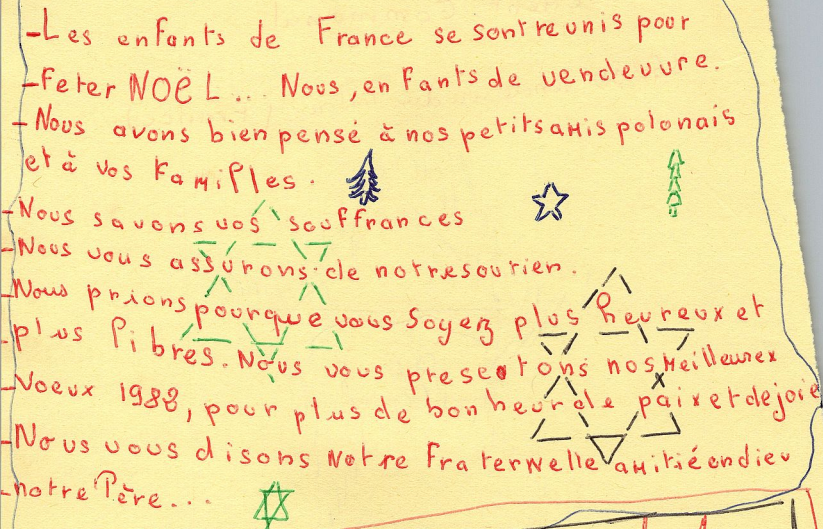 -Les enfants de France se sont reunis pour
-Feter NOËL... Nous, enfants de vendeuvre.
-Nous avons bien pensé à nos petits amis polonais
et à vos familles.
-Nous savons vos souffrances
-Nous vous assurons de notre soutien.
-Nous prions pour que vous soyez plus heureux et
-plus libres. Nous vous presentons nos meilleurex
-Voeux 1982, pour plus de bonheur de paix et de joie
-Nous vous disons notre fraternelle amitié en dieu
-notre Père...